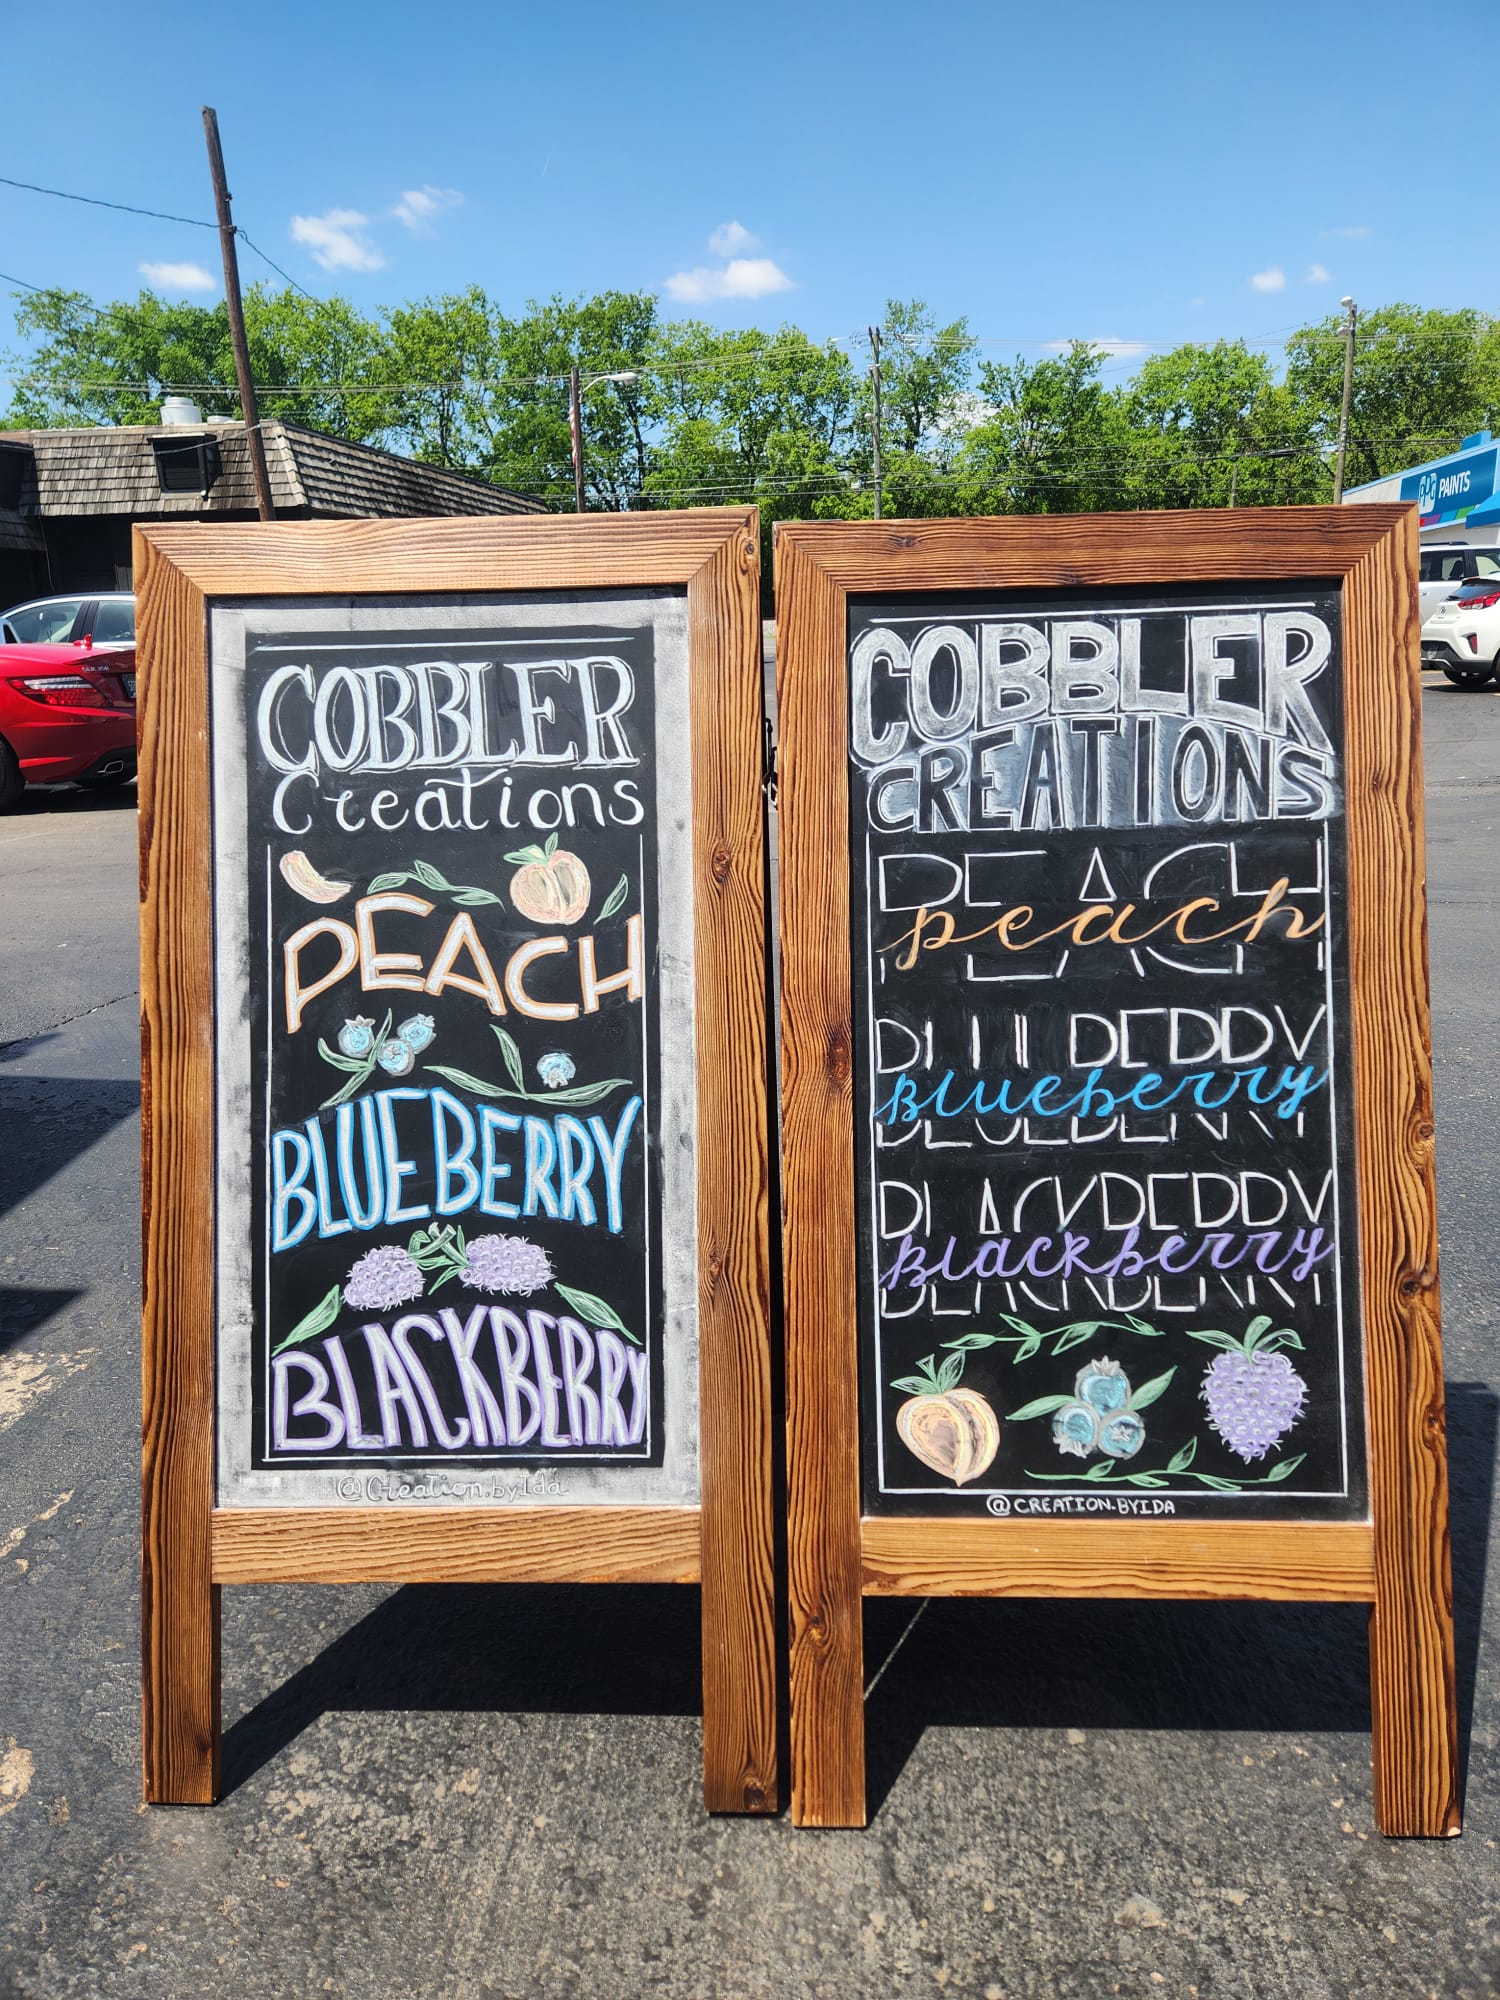 COBBLER
Creations
PEACH
BLUEBERRY
BLACKBERRY
@Creation.byIda
COBBLER
CREATIONS
PEACH
peach
BLUEBERRY
Blueberry
BLACKBERRY
Blackberry
@CREATION.BYIDA
PPG PAINTS